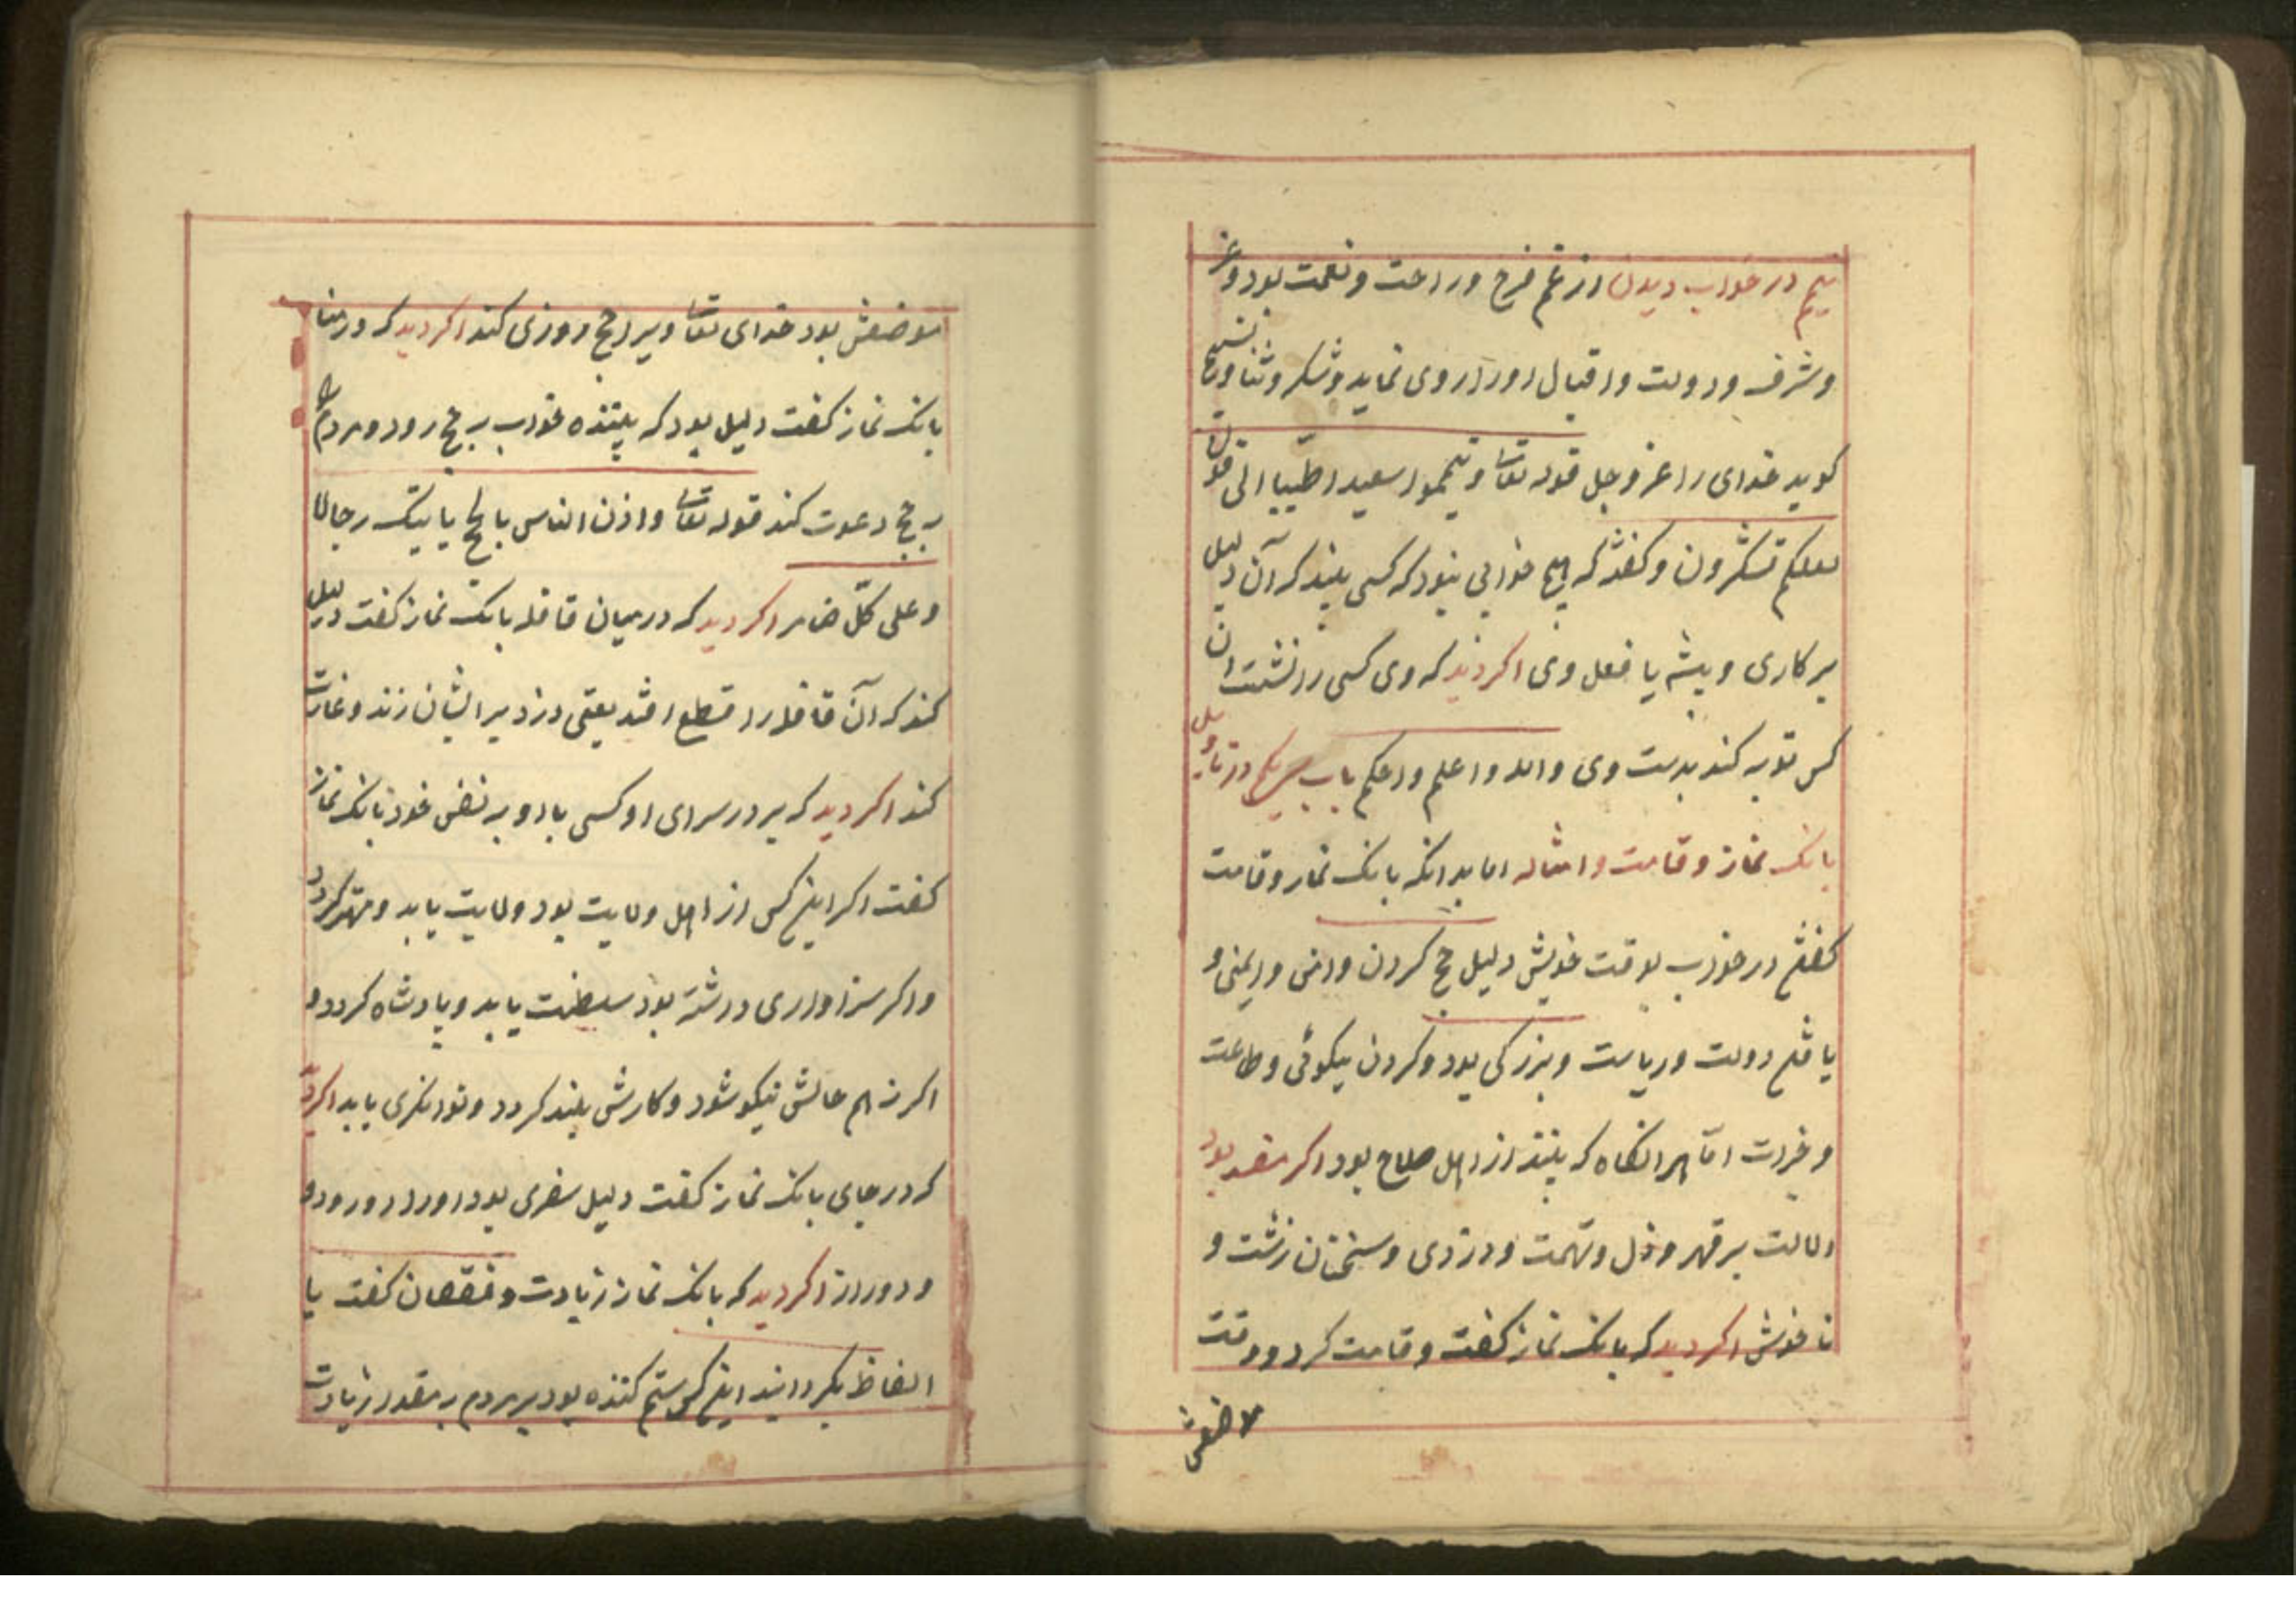 تیمم در خواب دیدن از غم فرح و راحت و نعمت بود و عز
و شرف و دولت و اقبال اورا روی نماید و شکر و ثنا و تسبیح
کوید خدای را عز و جل قوله تعا و تیمموا سعیدا طیبا الی قوله
لعلکم تشکرون و کفته‌ که هیچ خوابی نبود که کسی بیند که آن دلیل
بر کاری و پیشه یا فعل وی اکر دید که وی کسی را نشست ان
کس توبه کند بدست وی والله و اعلم و احکم باب در تاویل
بانک نماز و قامت و امثاله اما بدانکه بانک نماز و قامت
کفتن در خواب بوقت خویش دلیل حج کردن و امنی و ایمنی و
یافتن دولت و ریاست و بزرکی بود و کردن نیکوئی و طاعت
و خیرات اما هر انکاه که بیننده از اهل صلاح بود اکر مفسد بود
دلالت بر قهر و ذل و تهمت و دزدی و سخنان زشت و
ناخوش اکر دید که بانک نماز کفت و قامت کرد و وقت
موضعش
موضعش بود خدای تعا ویرا حج روزی کند اکر دید که در منا
بانک نماز کفت دلیل بود که بیننده خواب بر حج رود و مردم
بر حج دعوت کند قوله تعا و اذن الناس بالحج یاتیک رجالا
و علی کلّ ضامر اکر دید که در میان قافله بانک نماز کفت دلیل
کند که آن قافله را قطع افتد یعنی دزد بر ایشان زند و غارت
کند اکر دید که بر در سرای او کسی یا او به نفس خود بانک نماز
کفت اکر این کس از اهل ولایت بود ولایت یابد و مهتر کردد
و اکر سزاواری داشته بود سلطنت یابد و پادشاه کردد و
اکر نه هم حالش نیکو شود و کارش بلند کردد و توانکری یابد اکر دید
که در جای بانک نماز کفت دلیل سفری بود اورا دور و دو
و دور از اکر دید که بانک نماز زیادت و نقصان کفت یا
الفاظ بکردانید این کس ستم کننده بود بر مردم به مقدار زیادت